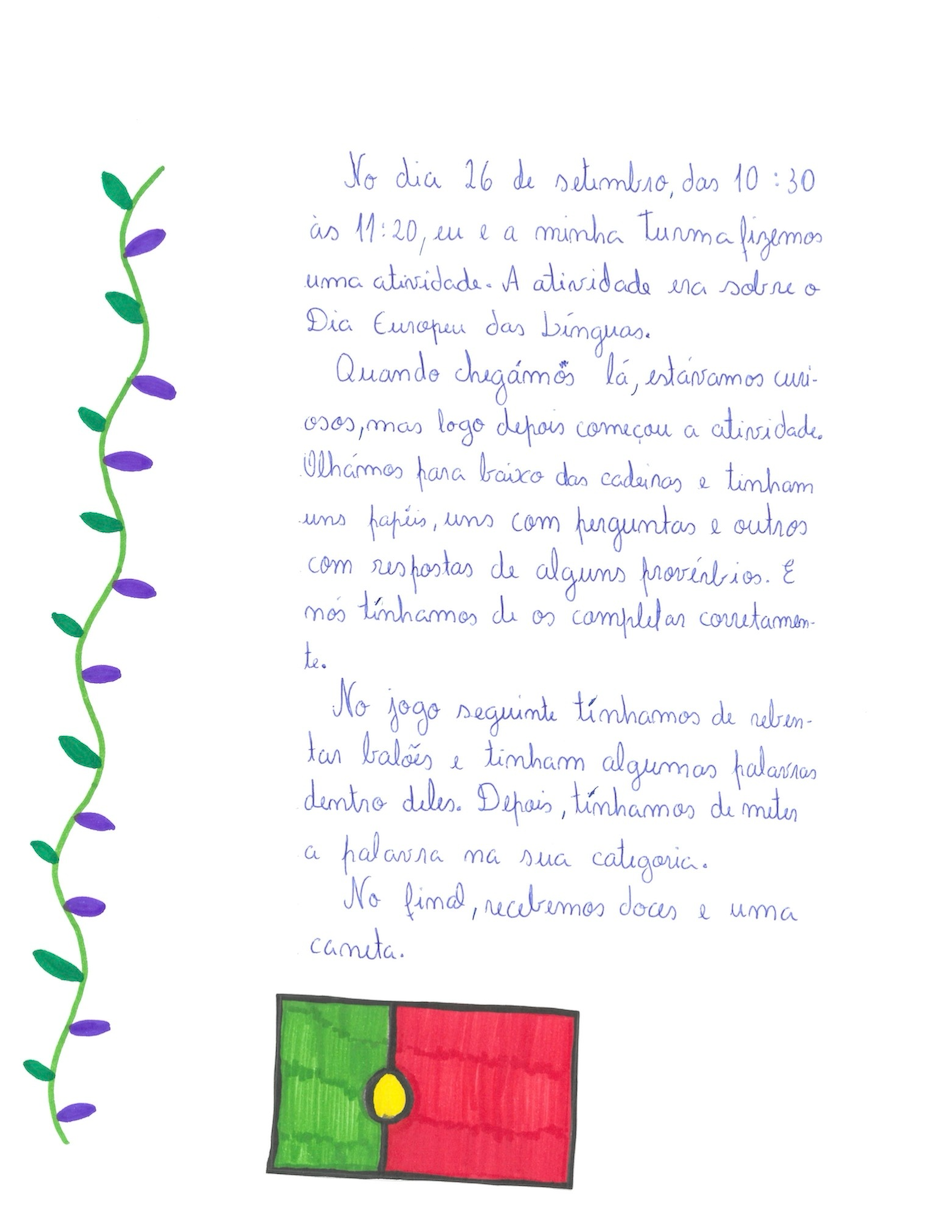 No dia 26 de setembro, das 10:30
às 11:20, eu e a minha turma fizemos
uma atividade. A atividade era sobre o
Dia Europeu das Línguas.
Quando chegámos lá, estávamos curi-
osos, mas logo depois começou a atividade.
Olhámos para baixo das cadeiras e tinham
uns papéis, uns com perguntas e outros
com respostas de alguns provérbios. E
nós tínhamos de os completar corretamen-
te.
No jogo seguinte tínhamos de reben-
tar balões e tinham algumas palavras
dentro deles. Depois, tínhamos de meter
a palavra na sua categoria.
No final, recebemos doces e uma
caneta.